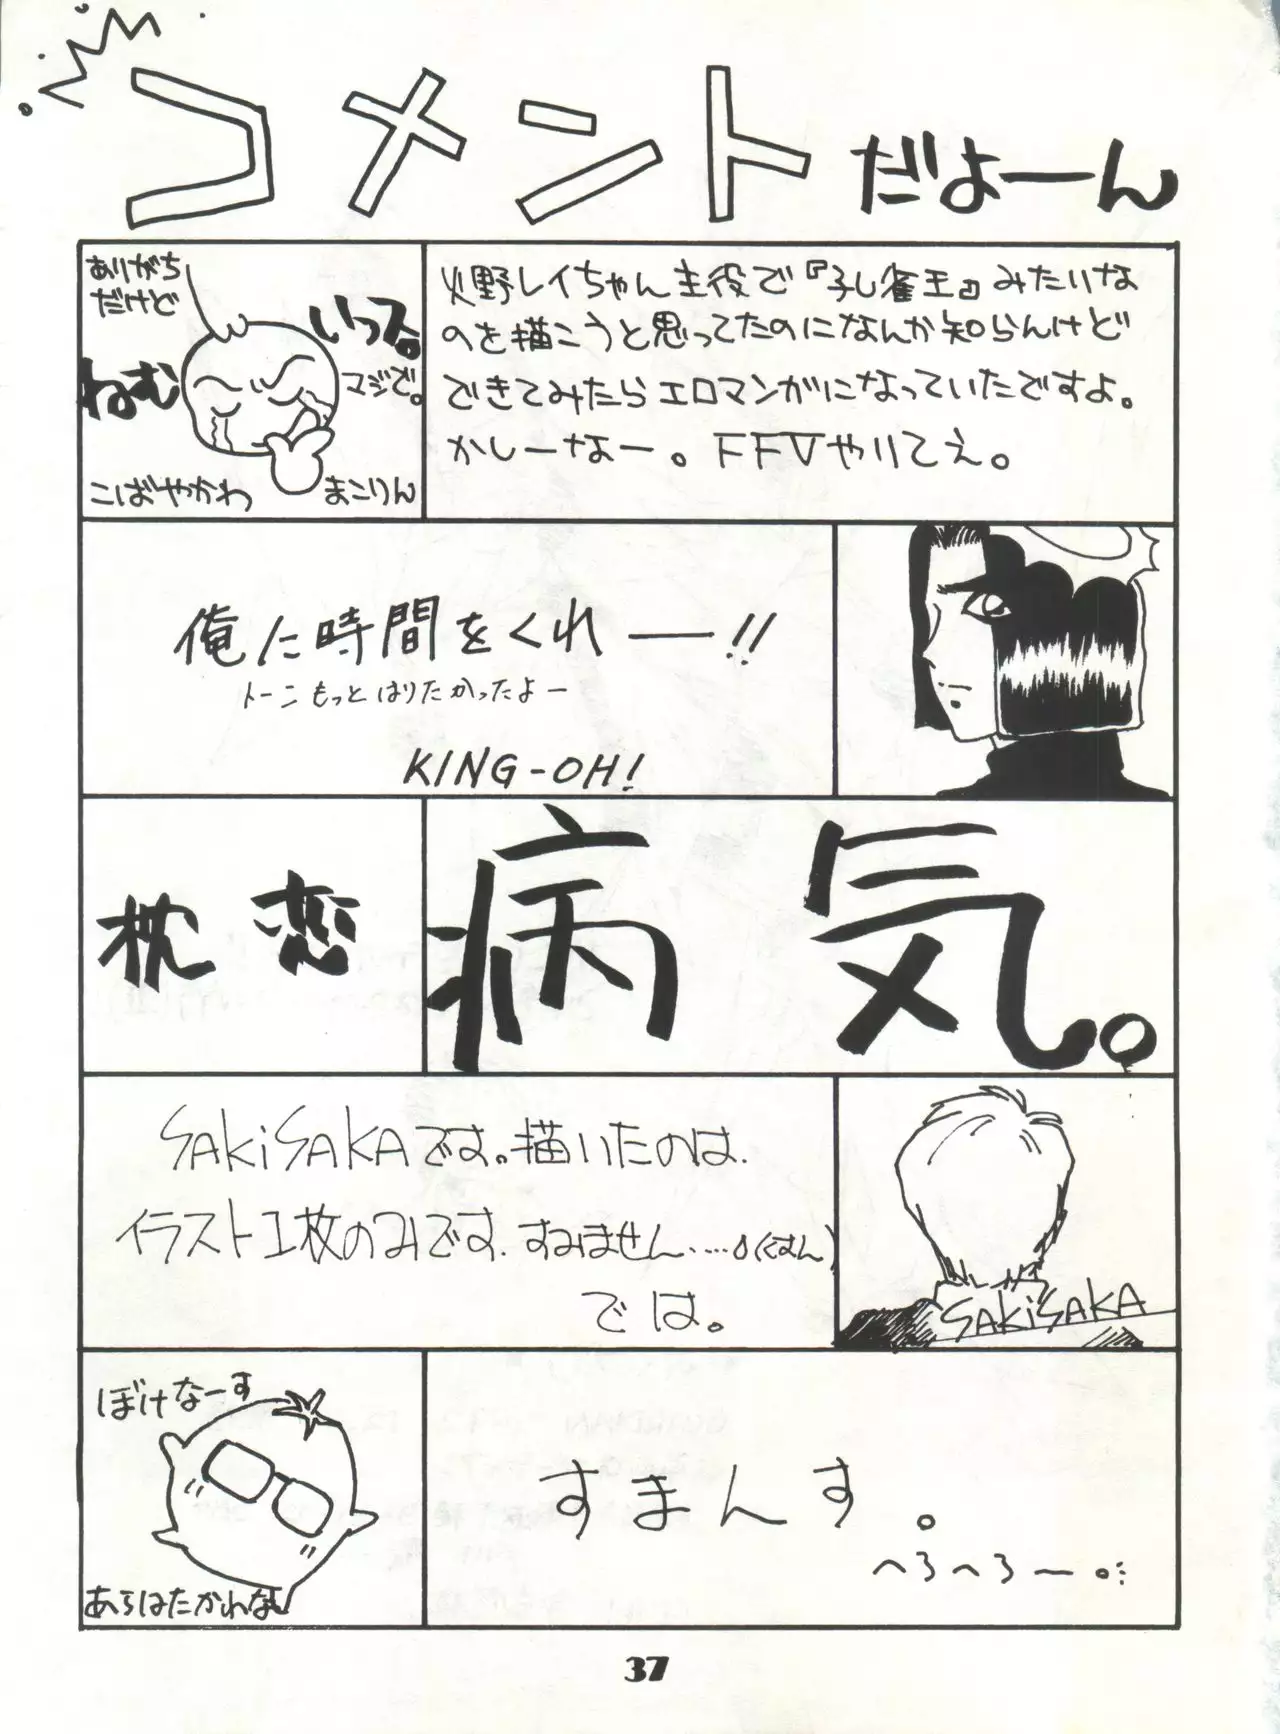 コメントだよーん
ありがち
だけど
ねむいっス。
マジで。
こばやかわ まこりん
火野レイちゃん主役で『孔雀王』みたいな
のを描こうと思ってたのになんか知らんけど
できてみたらエロマンガになっていたですよ。
かしーなー。FFVやりてえ。
俺に時間をくれ――!!
トーンもっとはりたかったよー
KING-OH!
枕恋
病気。
SAKiSAKAです。描いたのは.
イラスト1枚のみです.すみません.....(くすん)
では。
SAKiSAKA
ぼけなーす
あらはたかれなん
すまんす。
へろへろー
37